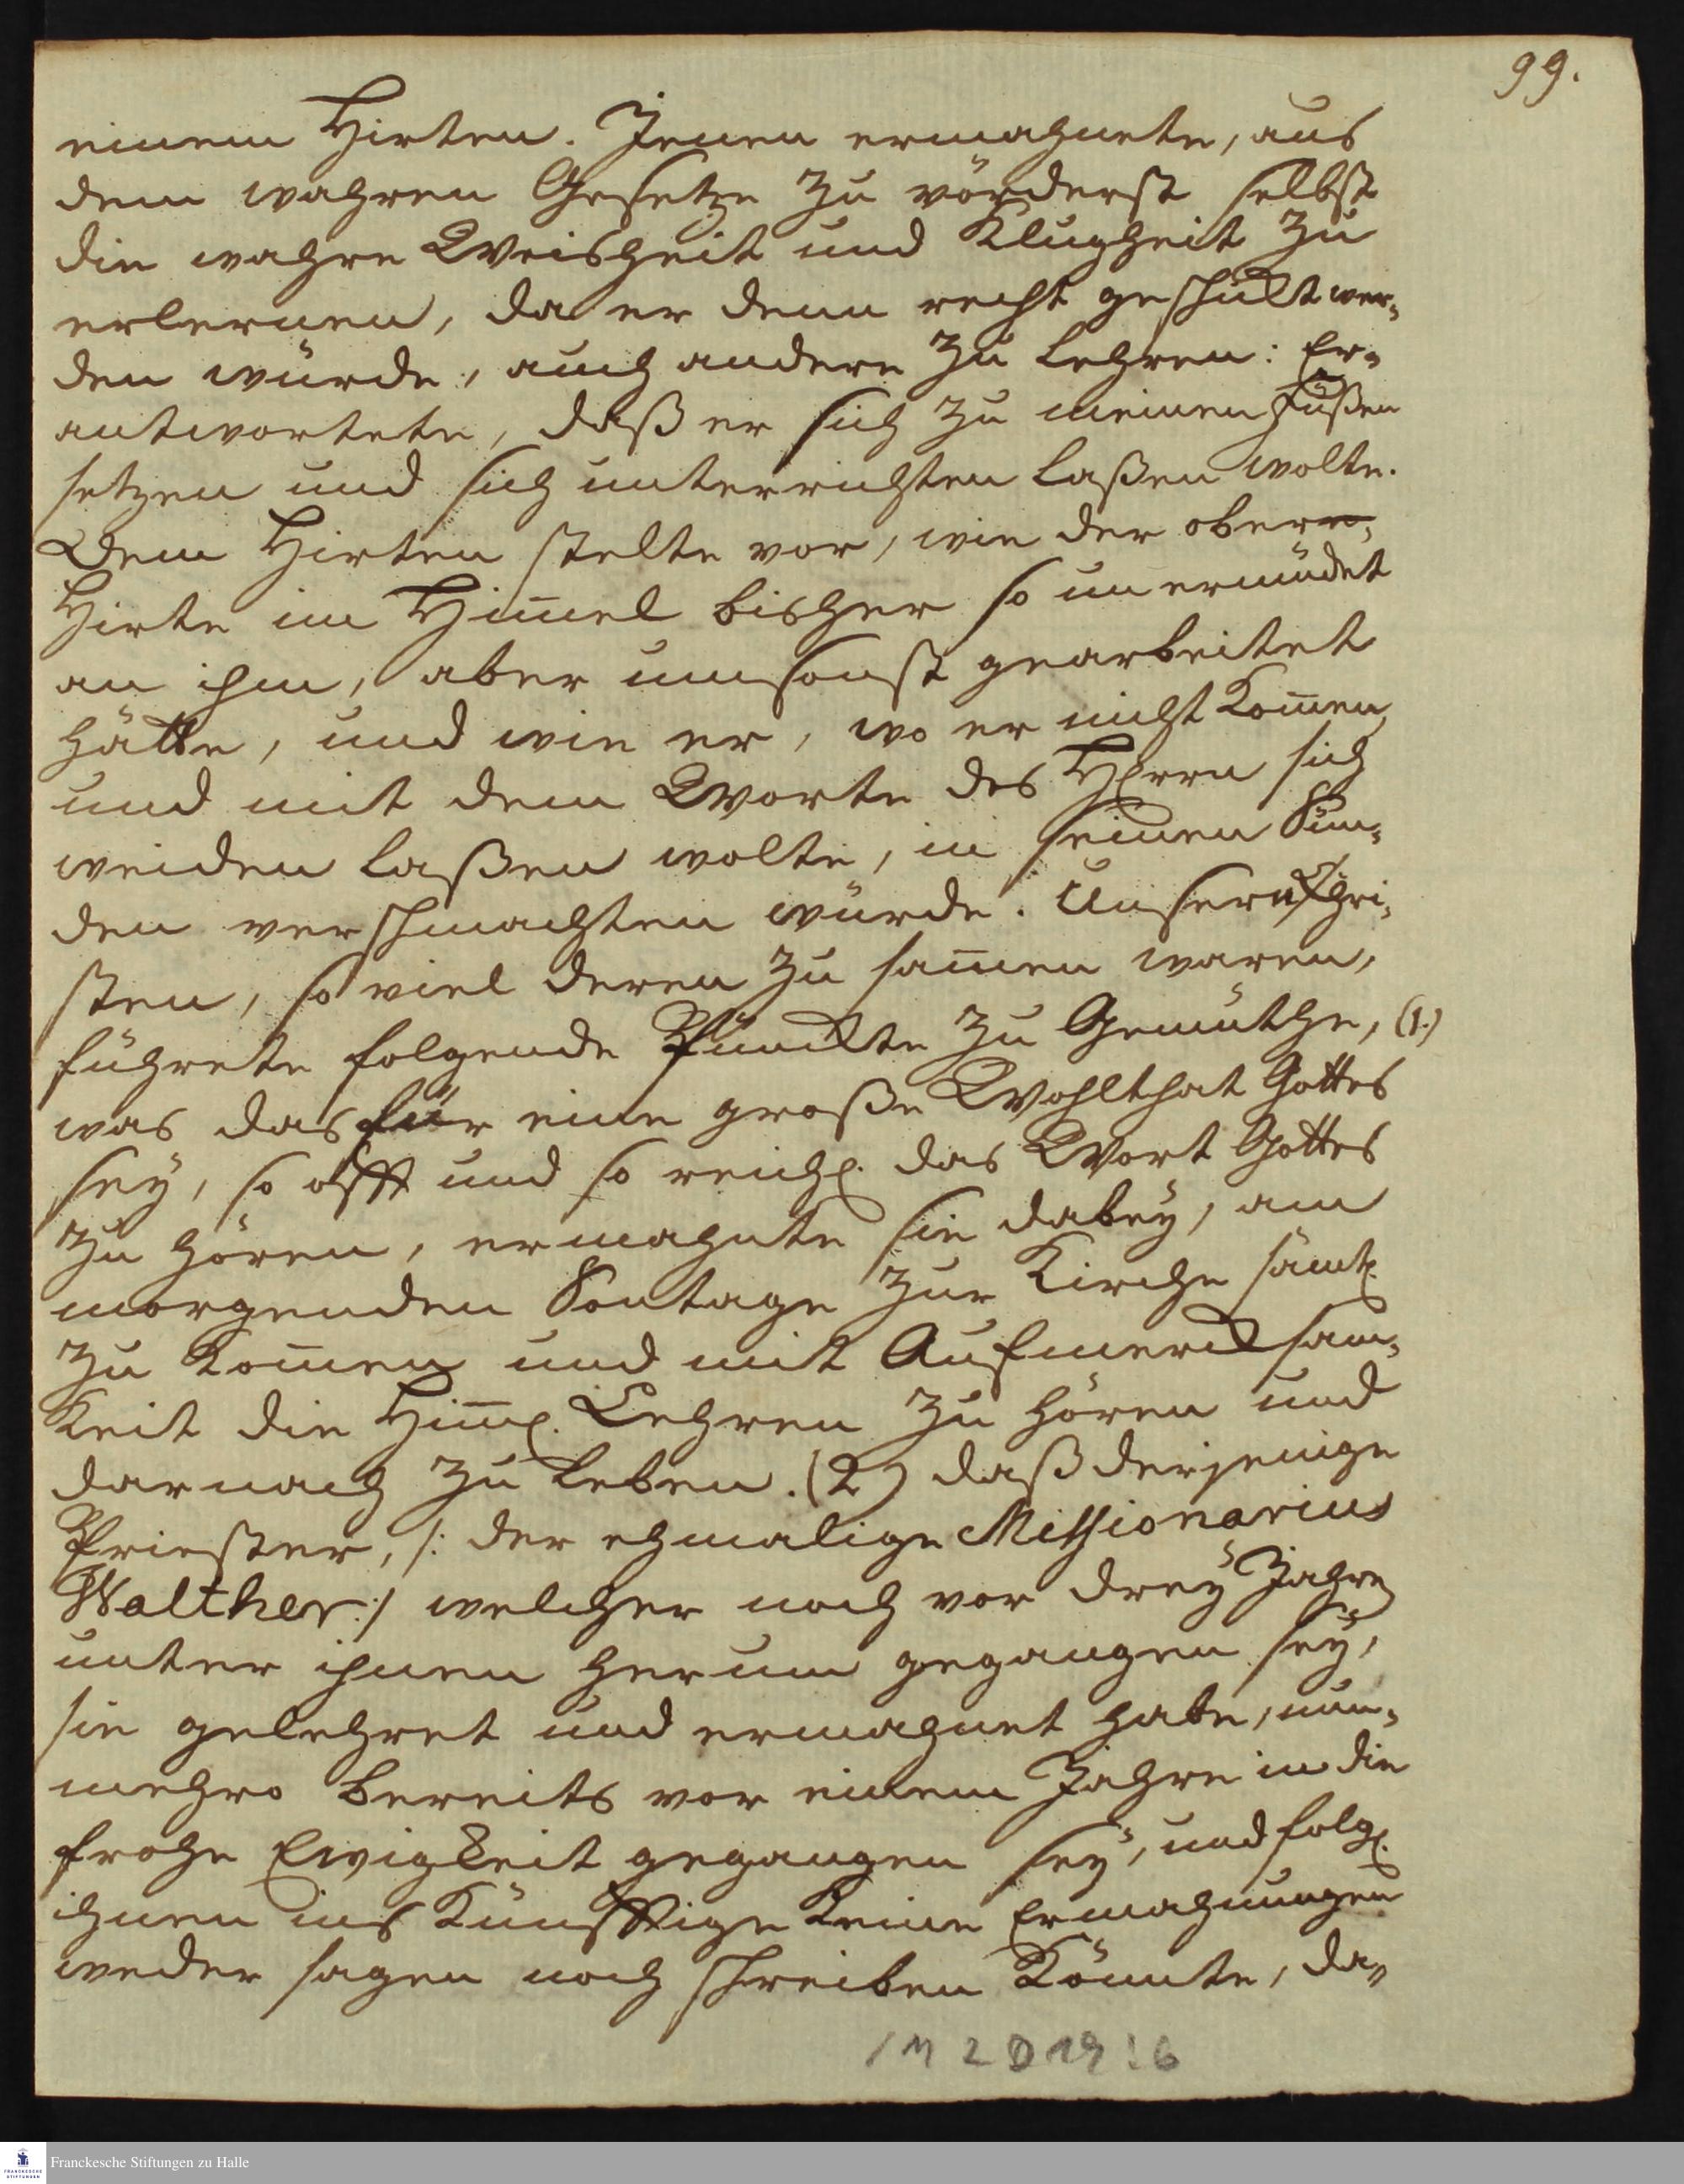 99.
einem Hirten. Jenen ermahnete, aus
dem wahren Gesetze zu vörderst selbst
die wahre Weisheit und Klugheit zu
erlernen, da er denn recht geschickt wer-
den würde, auch andere zu lehren: Er
antwortete, daß er sich zu meinen Füßen
setzen und sich unterrichten laßen wolte.
Dem Hirten stelte vor, wie der ober-
Hirte im Him̄el bisher so unermüdet
an ihm, aber umsonst gearbeitet
hätte, und wie er, wo er nicht kom̄en,
und mit dem Worte des HErrn sich
weiden laßen wolte, in seinen Sün-
den verschmachten würde. Unsern Chri-
sten, so viel deren zu sam̄en waren,
führete folgende Puncte zu Gemüthe, (1.)
was das für eine große Wohlthat Gottes
sey, so offt und so reichl. das Wort Gottes
zu hören, ermahnte sie dabey, am
morgenden Sontage zur Kirche sämtl.
zu kom̄en und mit Aufmercksam-
keit die Him̄l. Lehren zu hören und
darnach zu leben. (2) daß derjenige
Priester, /: der ehmalige Missionarius
Walther :/ welcher noch vor drey Jahren
unter ihnen herum gegangen sey,
sie gelehret und ermahnet habe, nun-
mehro bereits vor einem Jahre in die
frohe Ewigkeit gegangen sey, und folgl.
ihnen ins künfftige keine Ermahnungen
weder sagen noch schreiben könnte, da-
1M 2 D 19 : 6
FRANCKESCHE STIFTUNGEN
Franckesche Stiftungen zu Halle